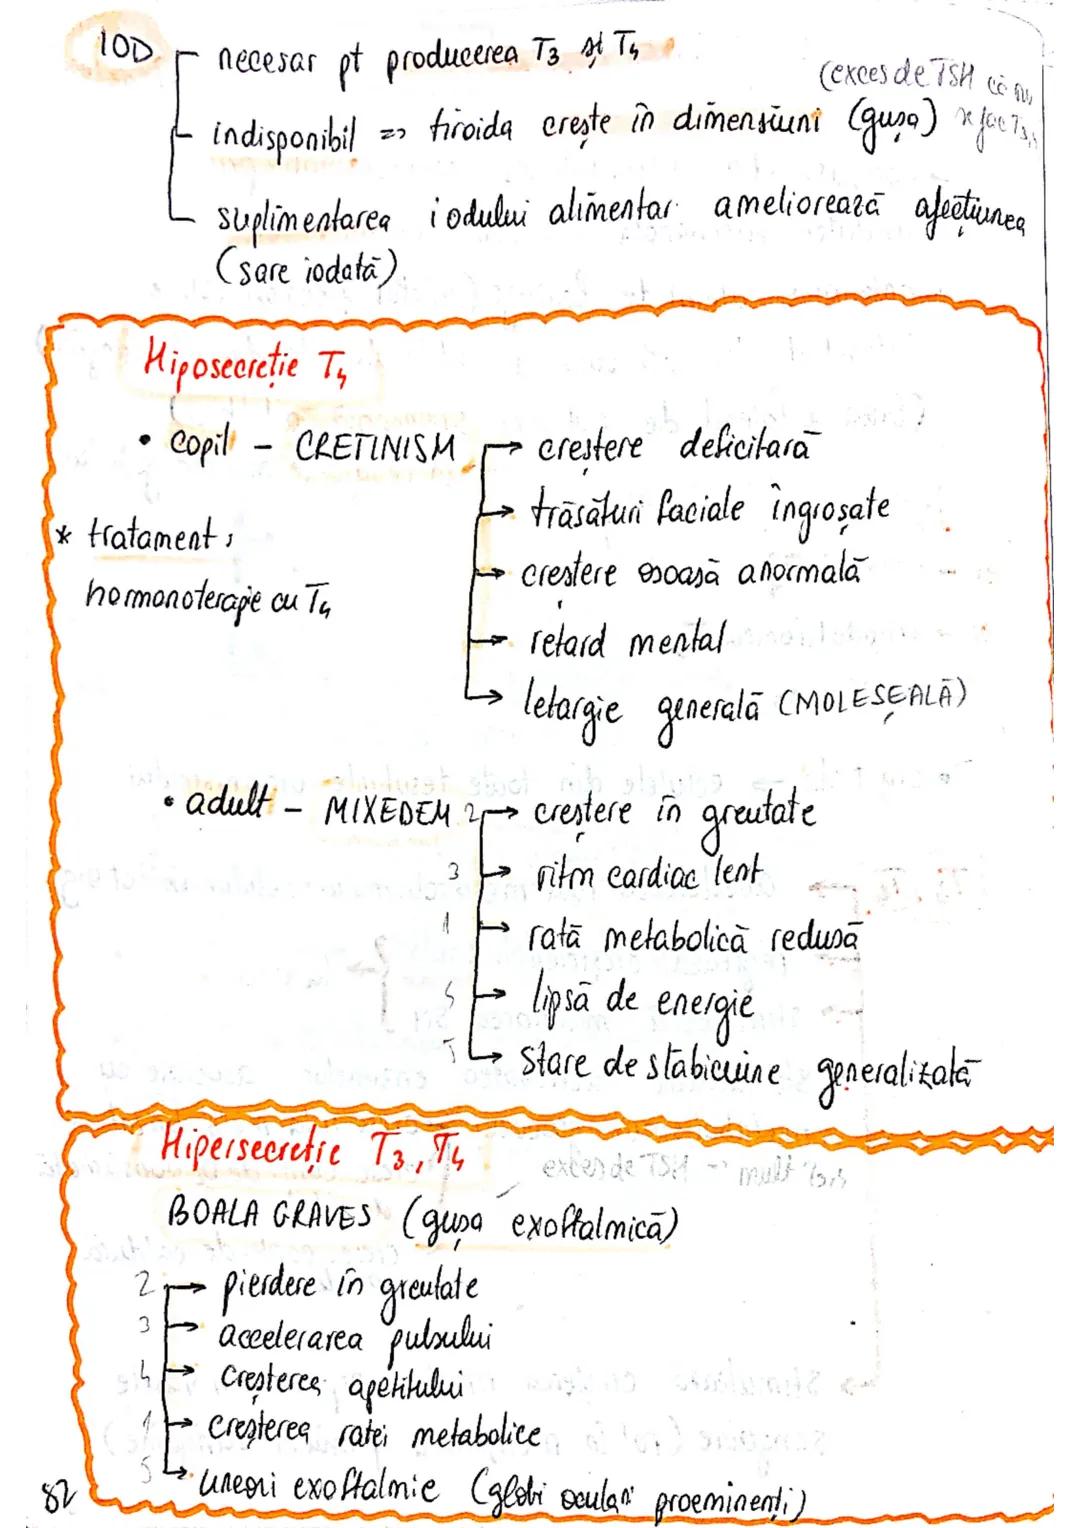 IOD
necesar pt producerea T3 și T4
(exces de TSH că nu
indisponibil => tiroida crește în dimensiuni (gușa) se fac T3,4
suplimentarea iodului alimentar ameliorează afecțiunea
(sare iodată)
Hiposecreție T4
• copil - CRETINISM → creștere deficitară
→ trăsături faciale îngroșate
* tratament:
→ creștere osoasă anormală
hormonoterapie cu T4
→ retard mental
→ letargie generală (MOLEȘEALĂ)
• adult - MIXEDEM 2 → creștere în greutate
3 → ritm cardiac lent
1 → rată metabolică redusă
→ lipsă de energie
→ stare de slăbiciune generalizată
Hipersecreție T3, T4
exces de TSH - mult T3,4
BOALA GRAVES (gușa exoftalmică)
2 → pierdere în greutate
3 → accelerarea pulsului
4 → creșterea apetitului
1 → creșterea ratei metabolice
5 → uneori exoftalmie (globi oculari proeminenți)
82